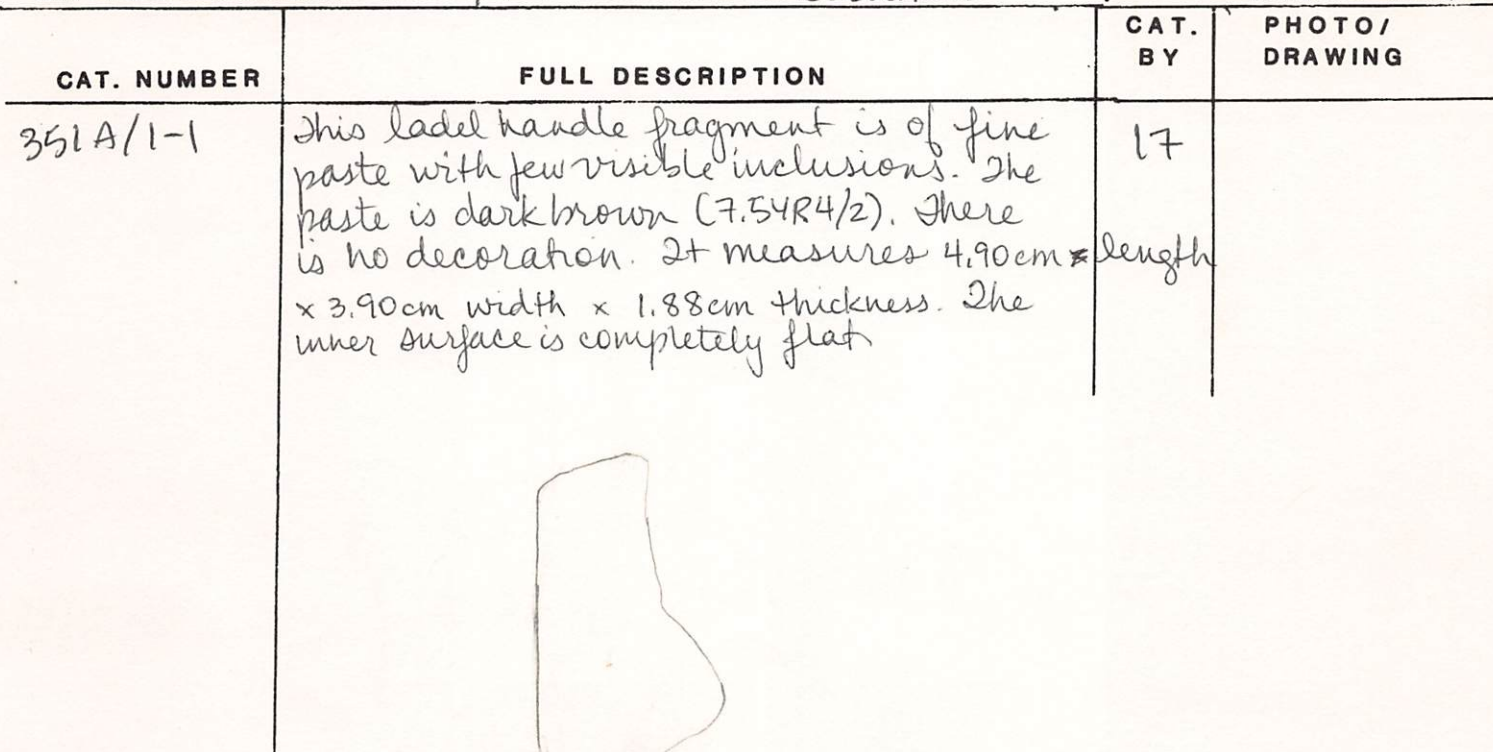 CAT. NUMBER FULL DESCRIPTION CAT. BY PHOTO/ DRAWING
351A/1-1 This ladel handle fragment is of fine 17
paste with few visible inclusions. The
paste is dark brown (7.5YR4/2). There
is no decoration. It measures 4.90cm length
x 3.90cm width x 1.88cm thickness. The
inner surface is completely flat